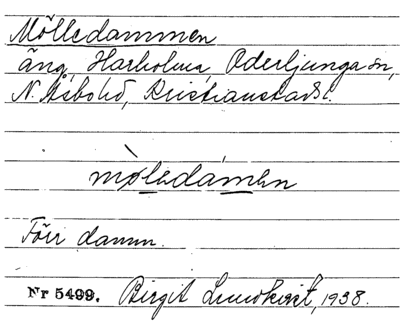 Mölledammen
äng, Harholma, Oderljunga sn,
N. Åsbo hd, Kristianstads l.
mòlledámen
Förr damm.
Nr 5499. Birgit Lundkvist, 1938.